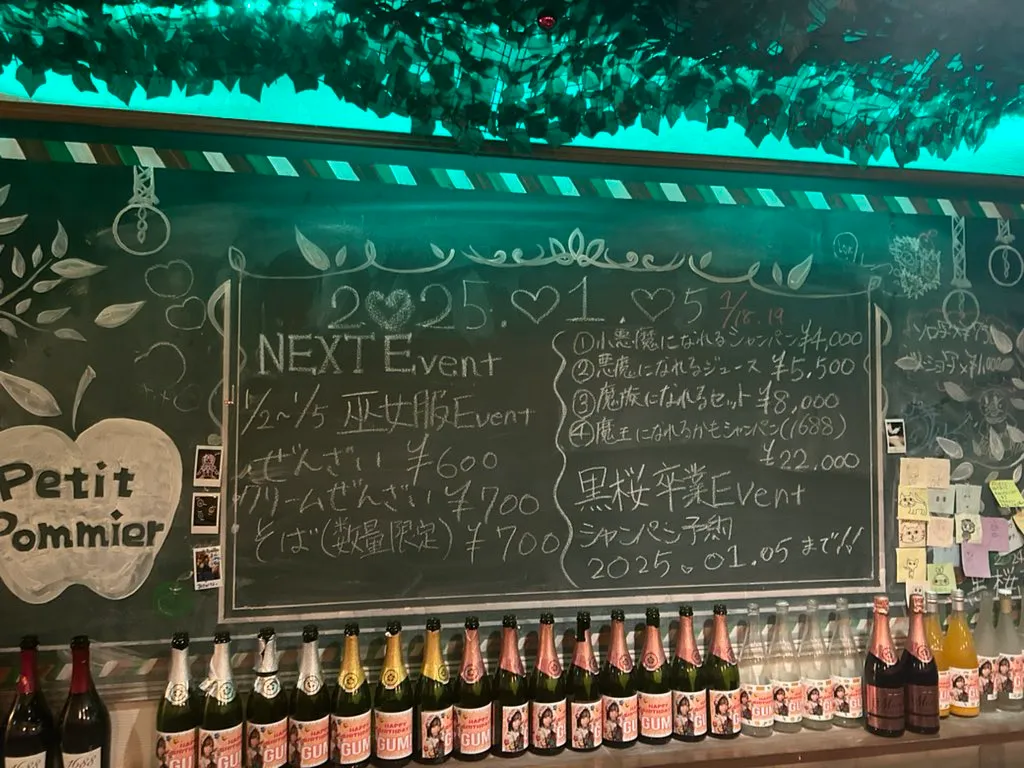 2025.1.5
NEXT Event
1/2〜1/5 巫女服Event
ぜんざい ¥600
クリームぜんざい ¥700
そば(数量限定) ¥700
1/18.19
①小悪魔になれるシャンパン¥4,000
②悪魔になれるジュース ¥5,500
③魔族になれるセット ¥8,000
④魔王になれるかもシャンパン(1688)
¥22,000
黒桜卒業Event
シャンパン予約
2025.01.05まで!!
Petit
Pommier
1688
1688
HAPPY
BIRTHDAY
GUM